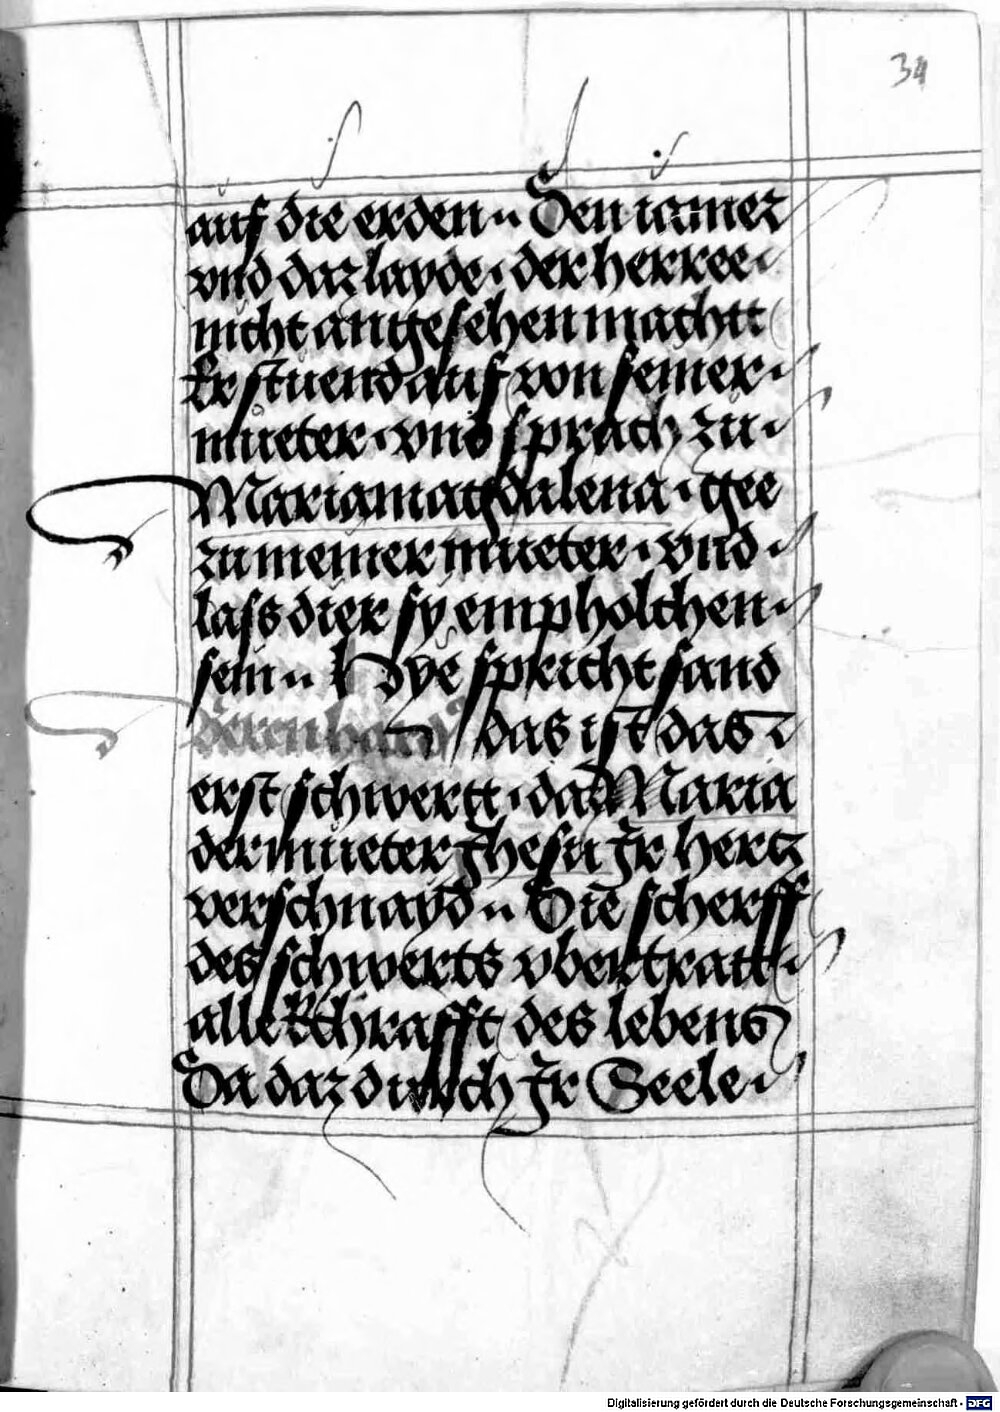 34
auf die erden ·· Den iamer
vnd daz layde · der herr ee ·
nicht angesehen macht
Er stuend auf von seiner ·
mueter · vnd sprach zu ·
Mariamagdalena · gee
zu meiner mueter · vnd ·
lass dier sy empholchen ·
sein ·· Hye spricht sand
Berenhard das ist das
erst schwertt · daz Maria
der mueter Jhesu Jr hertz
verschnayd ·· Die scherff
des schwerts vbertratt ·
alle kchrafft des lebens
Da daz durch Jr Seele ·
Digitalisierung gefördert durch die Deutsche Forschungsgemeinschaft - DFG